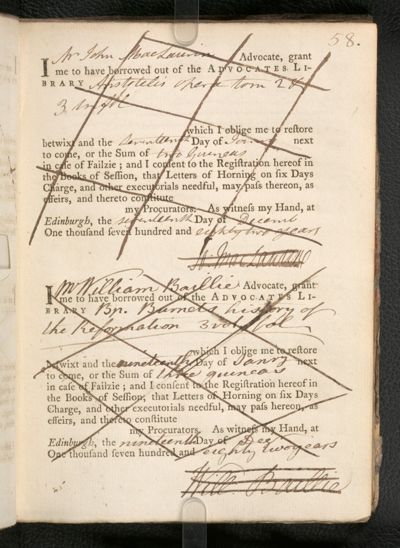 58.
I Mr John MacLaurin Advocate, grant
me to have borrowed out of the ADVOCATES LI-
BRARY Aristotelis opera tom 2d &
3
which I oblige me to restore
betwixt and the seventeenth Day of next
to come, or the Sum of two guineas
in case of Failzie ; and I consent to the Registration hereof in
the Books of Session, that Letters of Horning on six Days
Charge, and other executorials needful, may pass thereon, as
effeirs, and thereto constitute
my Procurators. As witness my Hand, at
Edinburgh, the seventeenth Day of Decemb
One thousand seven hundred and eighty two years
MacLaurin
I Mr William Baillie Advocate, grant
me to have borrowed out of the ADVOCATES LI-
BRARY Bp. Burnets history of
the Reformation 3 vol
which I oblige me to restore
betwixt and the nineteenth Day of Janry next
to come, or the Sum of three guineas
in case of Failzie ; and I consent to the Registration hereof in
the Books of Session, that Letters of Horning on six Days
Charge, and other executorials needful, may pass thereon, as
effeirs, and thereto constitute
my Procurators. As witness my Hand, at
Edinburgh, the nineteenth Day of Dec
One thousand seven hundred and eighty two years
Will Baillie